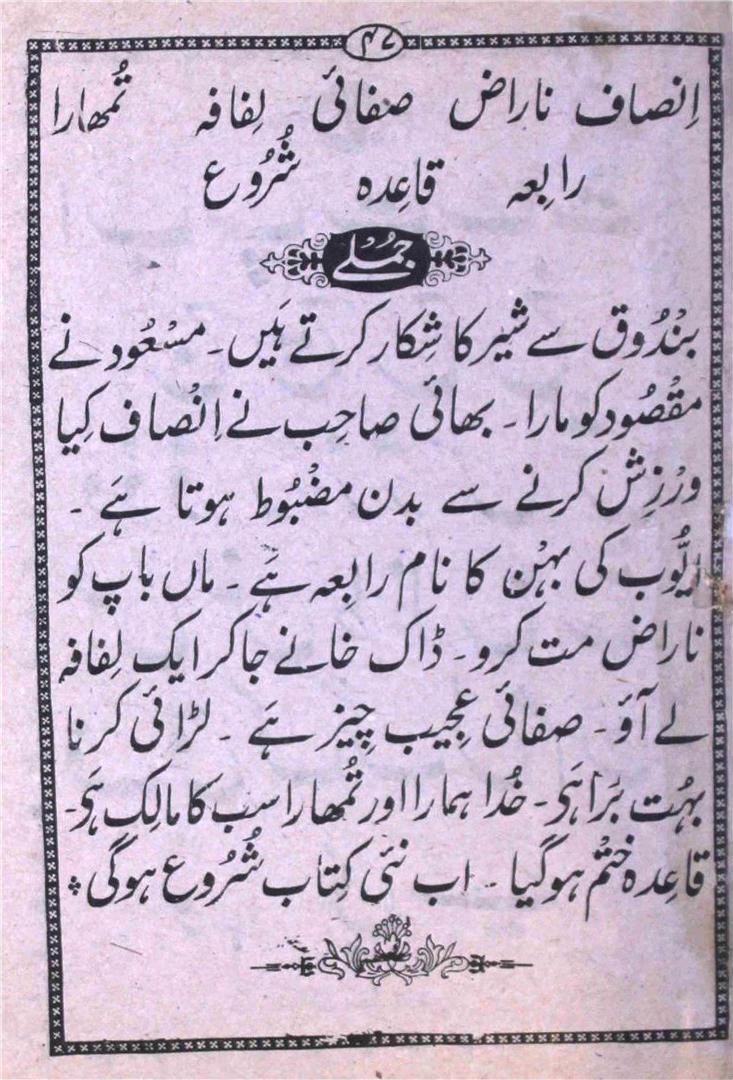 ۴۷
اِنصاف ناراض صفائی لِفافہ تُمھارا
رابِعہ قاعِدہ شُرُوع
جُملے
بنْدُوق سے شیر کا شِکار کرتے ہَیں۔ مسْعُود نے
مقْصُود کو مارا۔ بھائی صاحِب نے اِنْصاف کِیا
ورْزِش کرنے سے بدن مضْبُوط ہوتا ہَے۔
ایُّوب کی بہْن کا نام رابِعہ ہَے۔ ماں باپ کو
ناراض مت کرو۔ ڈاک خانے جاکر ایک لِفافہ
لے آؤ۔ صفائی عجِیب چِیز ہَے۔ لڑائی کرنا
بہُت بُرا ہَی۔ خُدا ہمارا اور تُمھارا سب کا مالِک ہَی۔
قاعِدہ ختْم ہوگیا۔ اب نئی کِتاب شُرُوع ہوگی؞